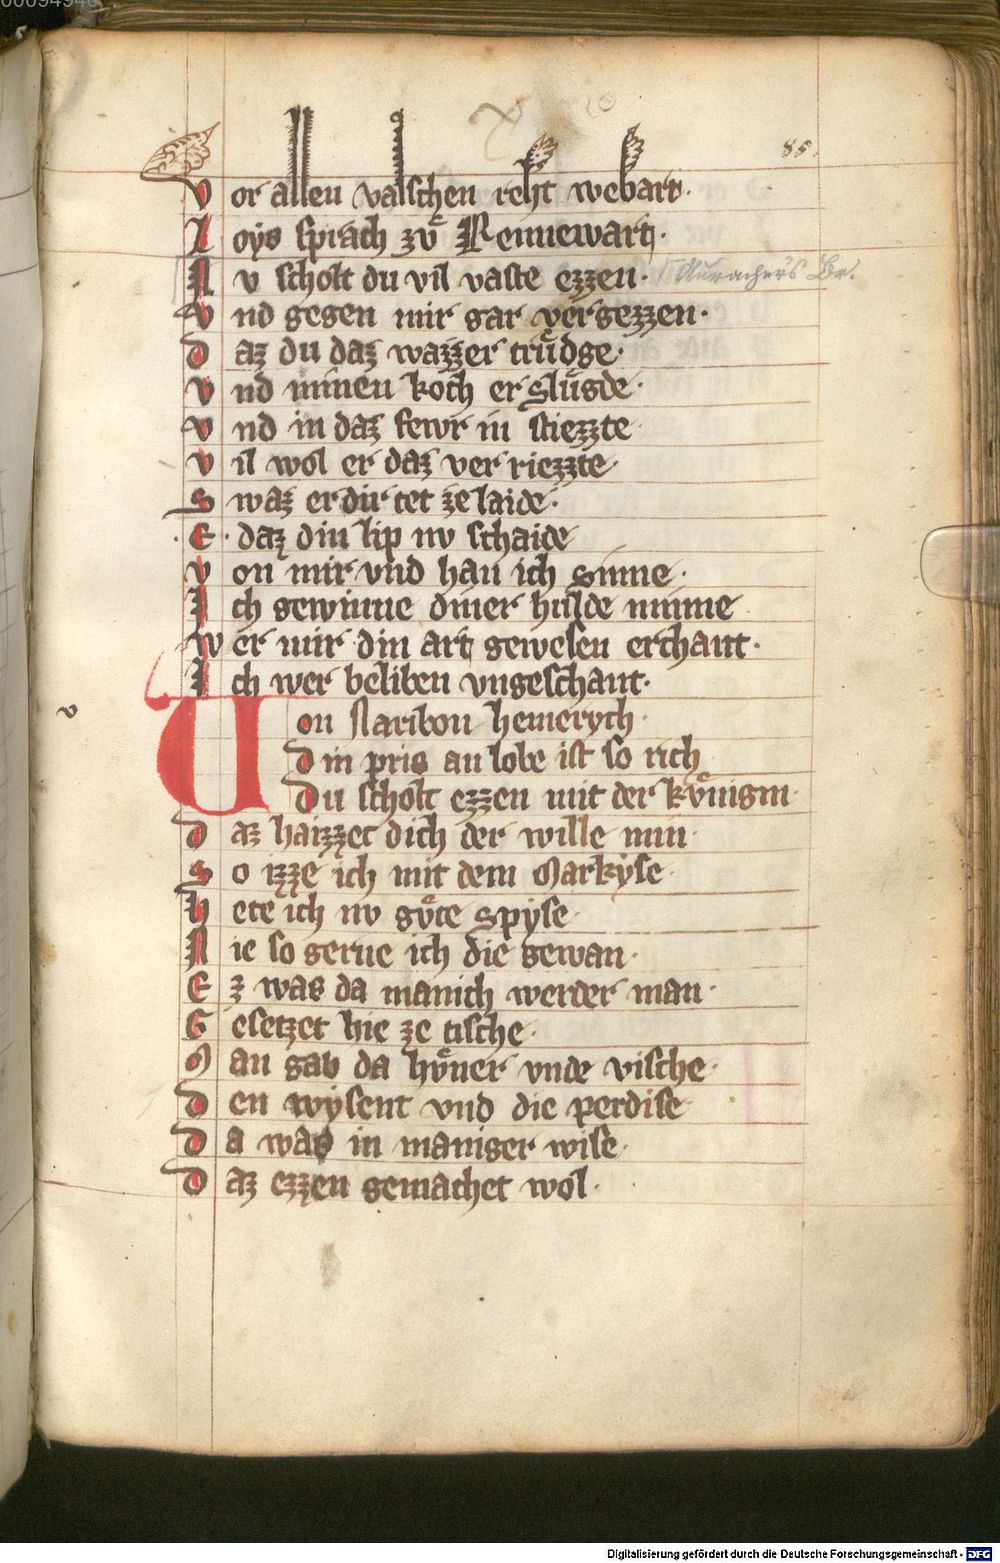 00094946
85.
vor allen valschen reht webart·
Loys sprach zvͦ Rennewart·
Nv scholt du vil vaste ezzen·
Auracher's Br.
vnd gegen mir gar vergezzen·
daz du daz wazzer trügde·
vnd minen koch erslügde·
vnd in daz fewr in stiezzte·
vil wol er daz verriezzte·
swaz er dir tet ze laide·
·E· daz din lip nv schaide
von mir vnd han ich sinne·
Ich gewinne diner hulde minne
wer mir din art gewesen erchant·
Ich wer beliben vngeschant·
v
Uon Naribon hemerych·
din pris an lobe ist so rich
Du scholt ezzen mit der kvͤnigin·
daz haizzet dich der wille min·
so izze ich mit dem Markyse·
hete ich nv gvͦte spyse·
Nie so gerne ich die gewan·
Ez was da manich werder man·
Gesetzet hie ze tische·
Man gab da hvͤner vnde vische·
den wysent vnd die perdise
da was in maniger wise·
daz ezzen gemachet wol·
Digitalisierung gefördert durch die Deutsche Forschungsgemeinschaft - DFG